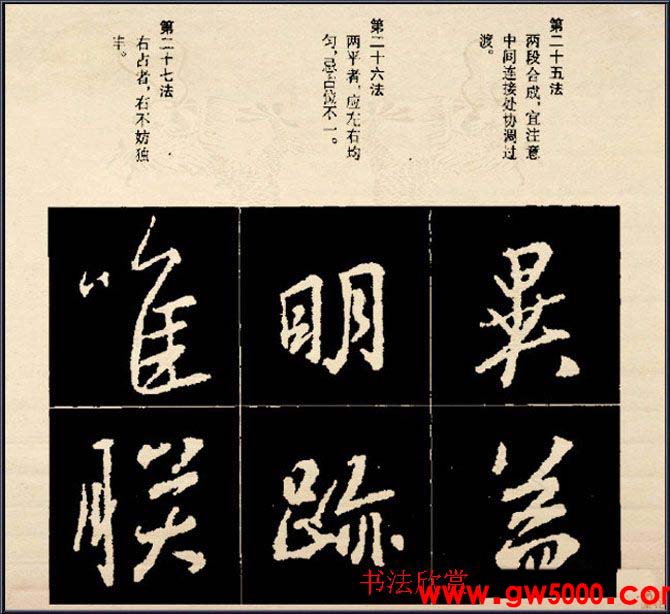 第二十五法
两段合成，宜注意
中间连接处协调过
渡。
第二十六法
两平者，应左右均
匀，忌占位不一。
第二十七法
右占者，右不妨独
丰。
盖
明
跡
唯
联
书法欣赏
www.gw5000.com